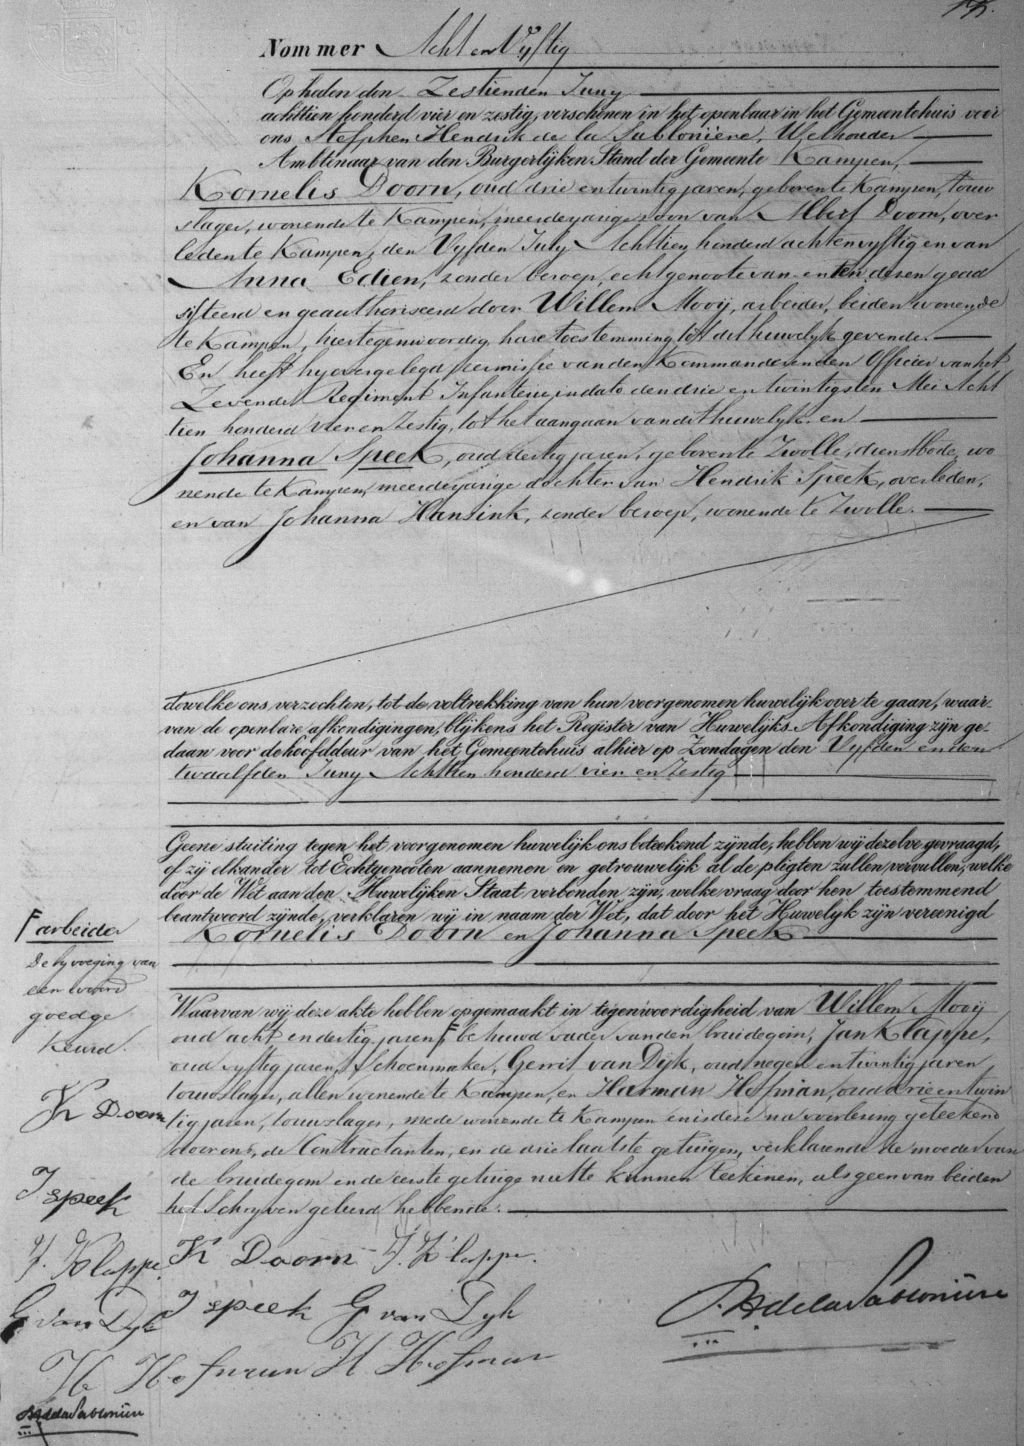 Nommer Acht en Vyftig
Op heden den Zestienden Juny
achttien honderd vier en zestig, verschenen in het openbaar in het Gemeentehuis voor
ons Stefphen Hendrik de la Sabloniere, Wethouder
Ambtenaar van den Burgerlijken Stand der Gemeente Kampen,
Kornelis Doorn, oud drie en twintig jaren, geboren te Kampen, touw
slager, wonende te Kampen, meerderjarige zoon van Albert Doorn, over
leden te Kampen, den Vyfden July Achttien honderd acht en vyftig en van
Anna Edien, zonder beroep, echtgenoote van en ten dezen gead
sisteerd en geauthoriseerd door Willem Mooij, arbeider, beiden wonende
te Kampen, hier tegenwoordig, hare toestemming tot dit huwelyk gevende.
En heeft hy overgelegd permissie van den Kommanderenden Officier van het
Zevende Regiment Infanterie in dato den drie en twintigsten Mei Acht
tien honderd vier en Zestig, tot het aangaan van dit huwelyk. en
Johanna Speek, oud dertig jaren, geboren te Zwolle, dienstbode, wo
nende te Kampen, meerderjarige dochter van Hendrik Speek, overleden,
en van Johanna Hansink, zonder beroep, wonende te Zwolle.
dewelke ons verzochten, tot de voltrekking van hun voorgenomen huwelijk over te gaan, waar-
van de openbare afkondigingen, blijkens het Register van Huwelijks Afkondiging zijn ge-
daan voor de hoofddeur van het Gemeentehuis alhier op Zondagen den Vyfden en den
twaalfden Juny Achttien honderd vier en Zestig
Geene stuiting tegen het voorgenomen huwelijk ons beteekend zijnde, hebben wij dezelve gevraagd,
of zij elkander tot Echtgenooten aannemen en getrouwelijk al de pligten zullen vervullen, welke
door de Wet aan den Huwelijken Staat verbonden zijn; welke vraag door hen toestemmend
beantwoord zijnde, verklaren wij in naam der Wet, dat door het Huwelyk zijn vereenigd
Kornelis Doorn en Johanna Speek
Waarvan wij deze akte hebben opgemaakt in tegenwoordigheid van Willem Mooij
oud acht en dertig jaren, F behuwd vader van den bruidegom, Jan Klappe,
oud vyftig jaren, Schoenmaker, Gerrit van Dijk, oud negen en twintig jaren
touwslager, allen wonende te Kampen, en Harman Hofman, oud drie en twin
tig jaren, touwslager, mede wonende te Kampen en is deze na voorlezing geteekend
door ons, de Contractanten, en de drie laatste getuigen, verklarende de moeder van
de bruidegom en de eerste getuige niet te kunnen teekenen, als geen van beiden
het Schryven geleerd hebbende.
F arbeider
De byvoeging van
een woord
goedge
keurd.
K Doorn
J speek
J. Klappe
G van Dyk
H Hofman
SHdelaSabloniere
K Doorn J. Klappe.
J speek G van Dyk
H Hofman
SHdelaSabloniere